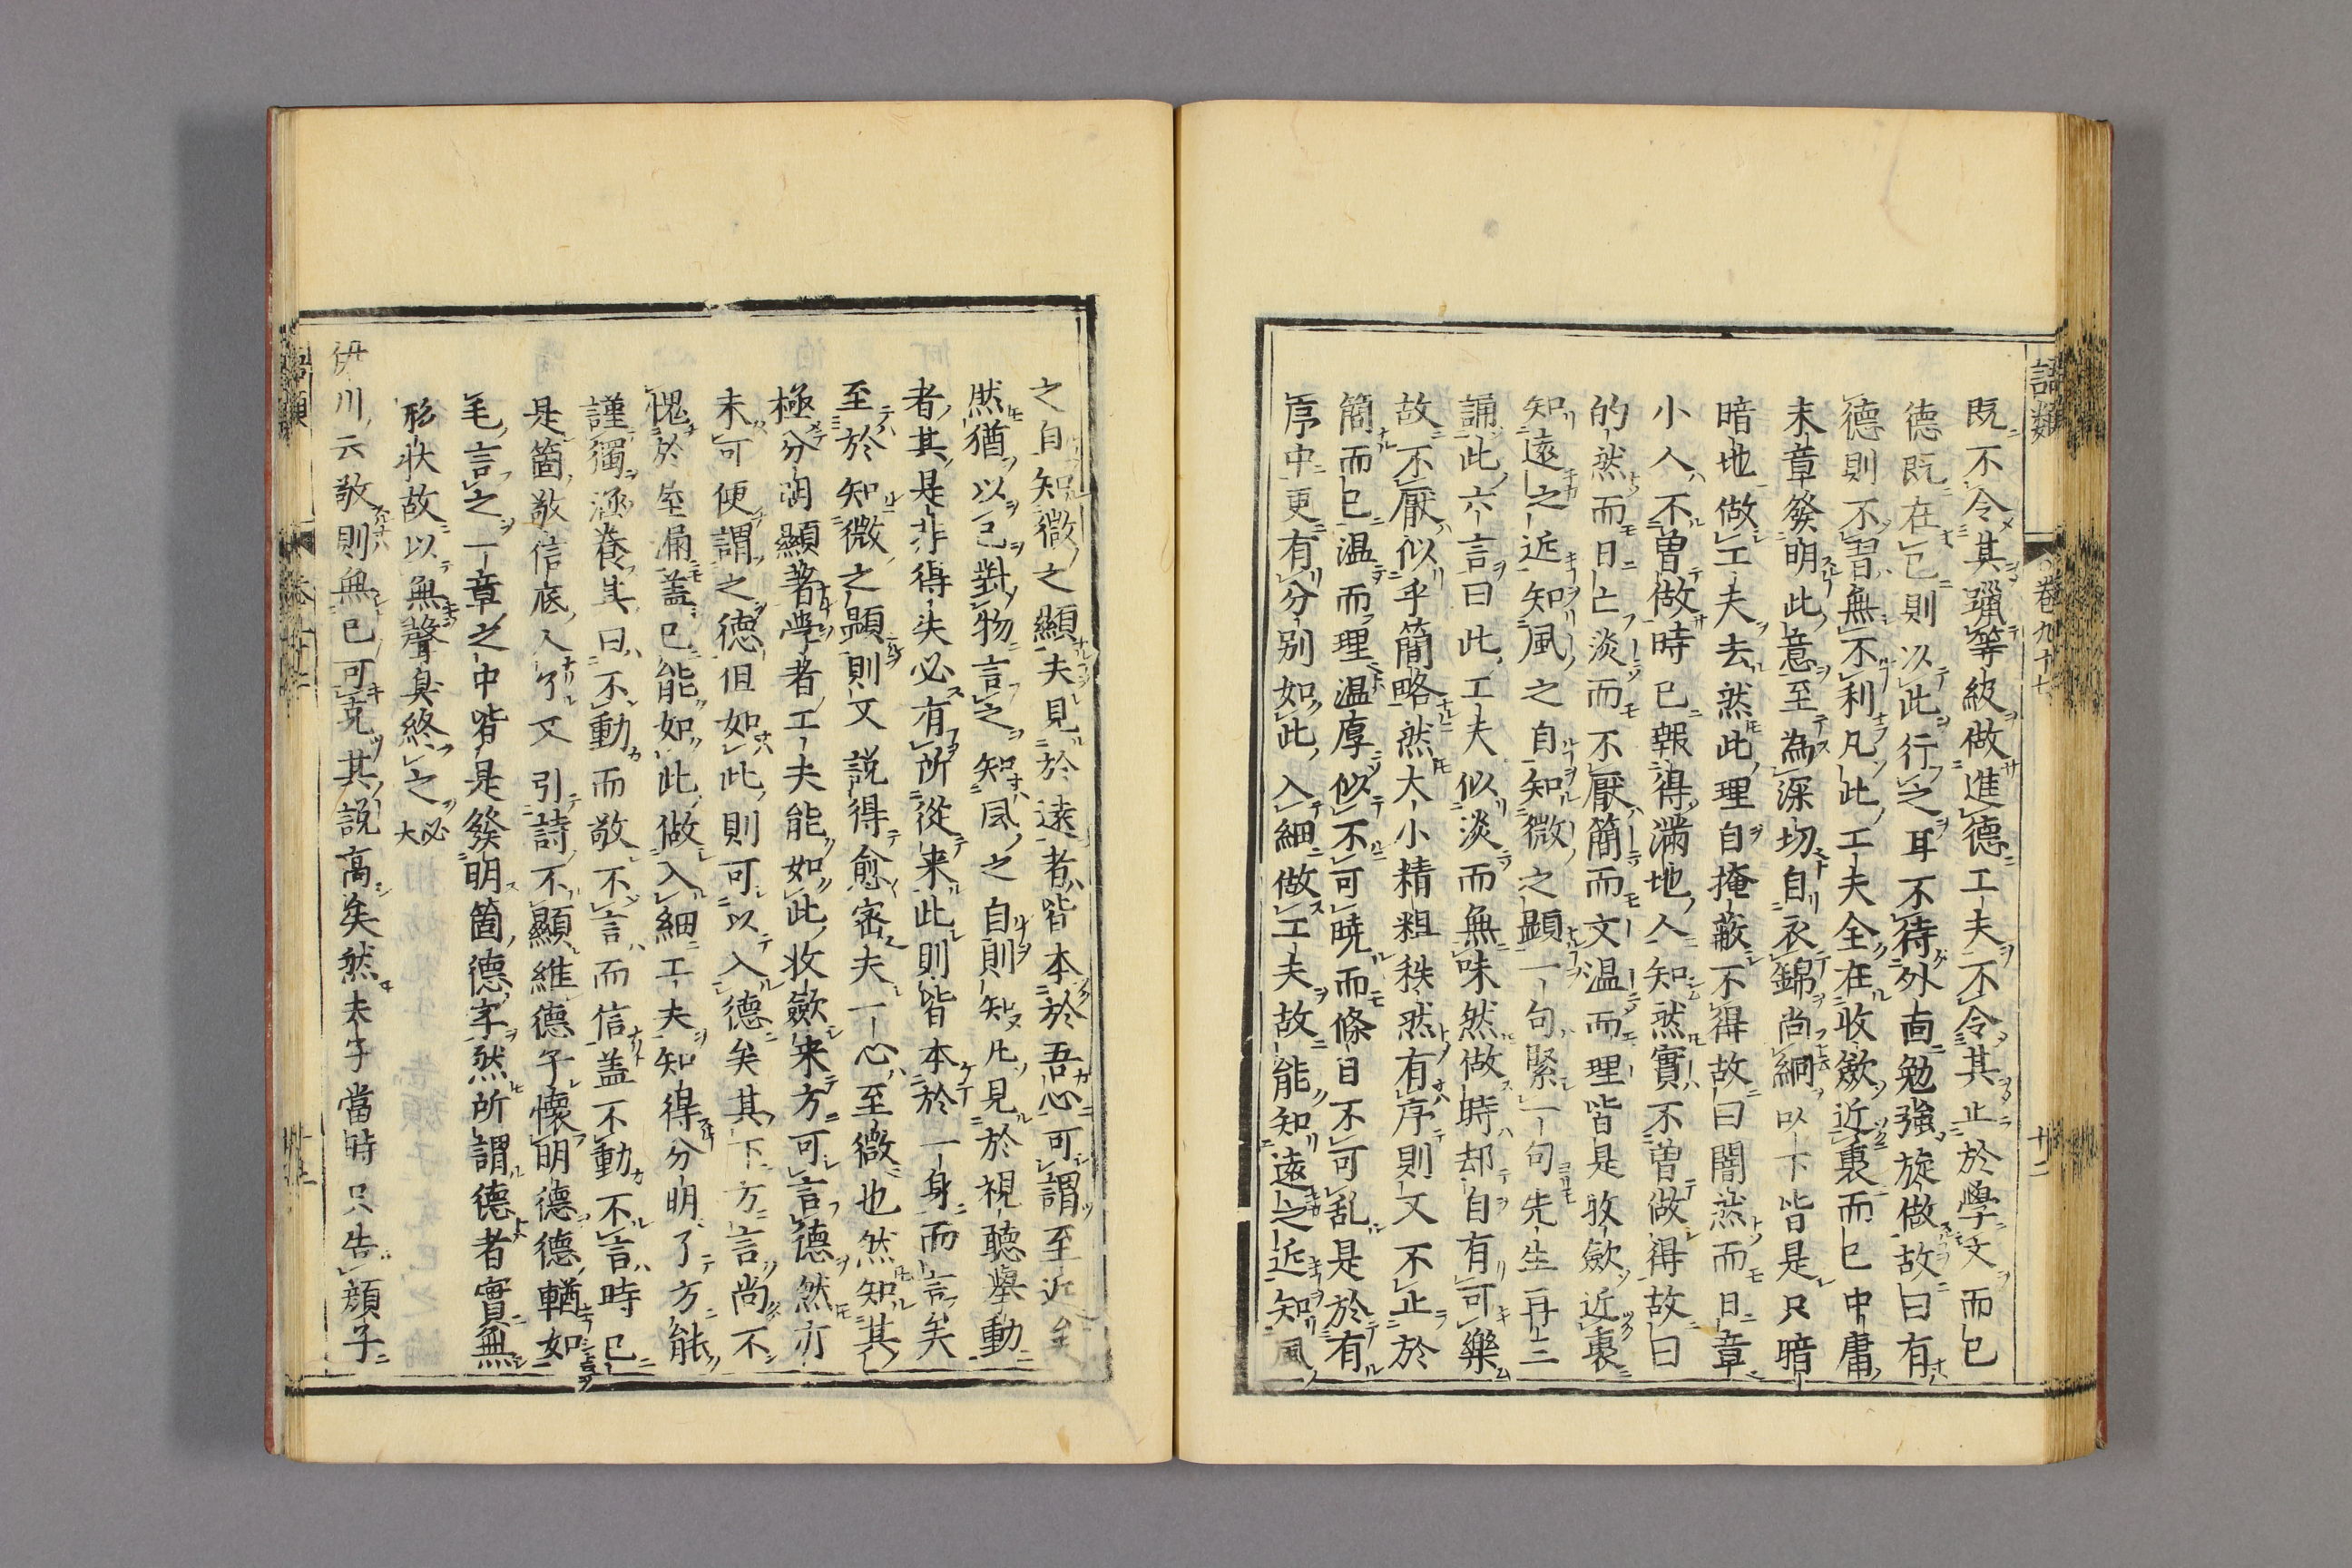 語類
卷九十七
十二
既不令其躐等級做進德工夫不令其止於學文而已
德既在已則以此行之耳不待外面勉強旋做故曰有
德則不習無不利凡此工夫全在收歛近裏而已中庸
末章發明此意至為深切自衣錦尚絅以下皆是只暗
暗地做工夫去然此理自掩蔽不得故曰闇然而日章
小人不曾做時已報得滿地人知然實不曾做得故曰
的然而日亡淡而不厭簡而文温而理皆是收歛近裏
知遠之近知風之自知微之顯一句緊一句先生再三
誦此六言曰此工夫似淡而無味然做時却自有可樂
故不厭似乎簡略然大小精粗秩然有序則又不止於
簡而已温而理温厚似不可曉而條目不可乱是於有
序中更有分別如此入細做工夫故能知遠之近知風
之自知微之顯夫見於遠者皆本於吾心可謂至近矣
然猶以已對物言之知風之自則知凡見於視聽舉動
者其是非得失必有所從来此則皆本於一身而言矣
至於知微之顯則又説得愈密夫一心至微也然知其
極分明顯著學者工夫能如此收歛来方可言德然亦
未可便謂之德但如此則可以入德矣其下方言尚不
愧於屋漏蓋已能如此做入細工夫知得分明了方能
謹獨涵養其曰不動而敬不言而信蓋不動不言時已
是箇敬信底人了又引詩不顯維德予懷明德德輶如
毛言之一章之中皆是發明箇德字然所謂德者實無
形状故以無聲臭終之必大
伊川云敬則無已可克其説高矣然夫子當時只告顔子